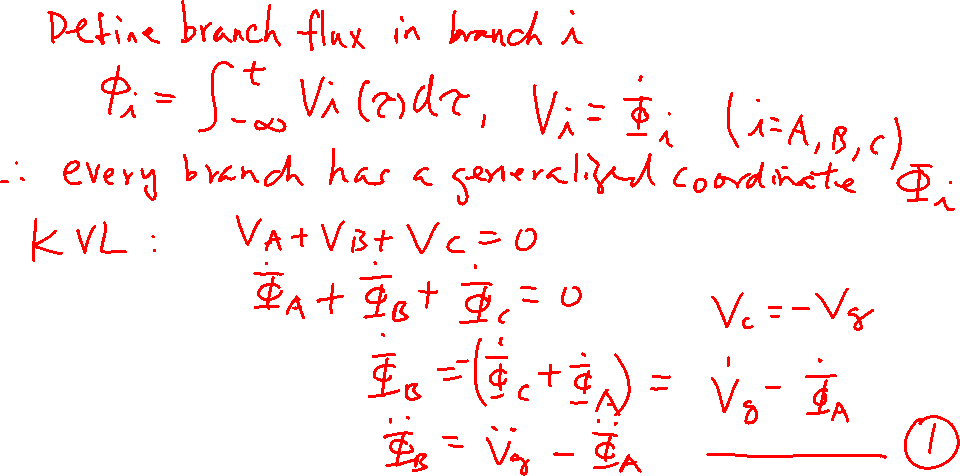 Define branch flux in branch i
ϕᵢ = ∫_{-∞}^{t} Vᵢ(τ)dτ, Vᵢ = Φ̇ᵢ (i=A,B,C)
∴ every branch has a generalized coordinate Φᵢ
KVL: V_A + V_B + V_C = 0
Φ̇_A + Φ̇_B + Φ̇_C = 0
V_C = -V_g
Φ̇_B = -(Φ̇_C + Φ̇_A) = V̇_g - Φ̇_A
Φ̈_B = V̈_g - Φ̈_A ①